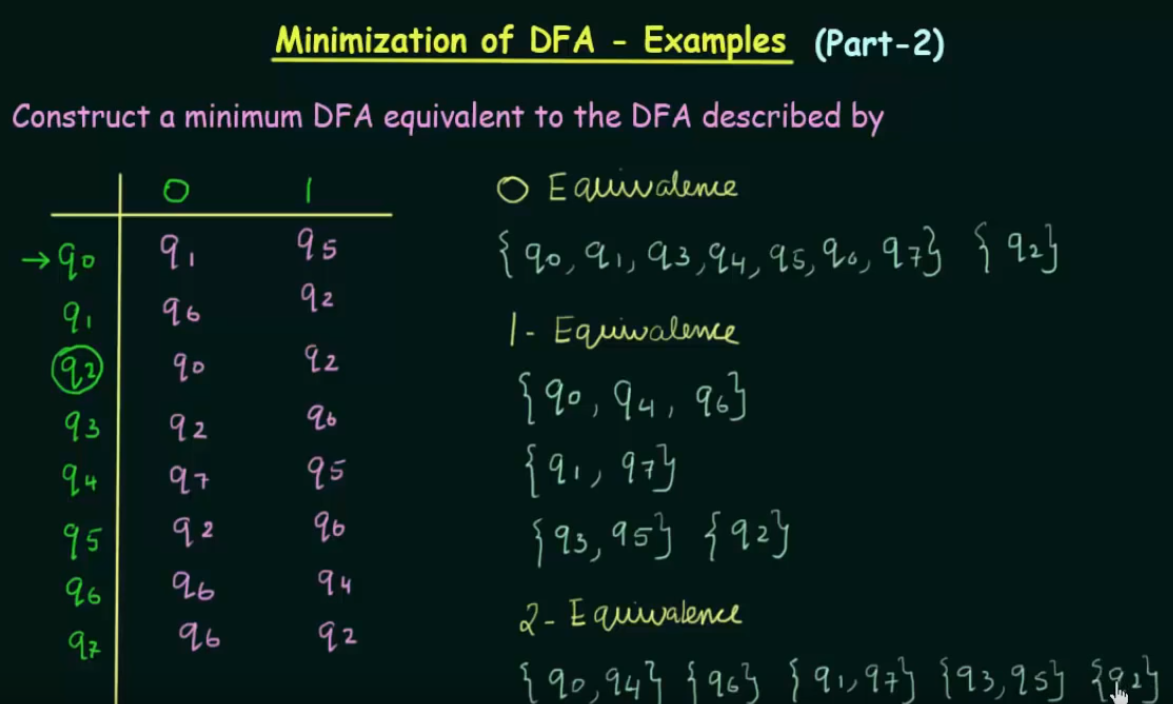 Minimization of DFA - Examples (Part-2)
Construct a minimum DFA equivalent to the DFA described by
0 1
→q0 q1 q5
q1 q6 q2
q2 q0 q2
q3 q2 q6
q4 q7 q5
q5 q2 q6
q6 q6 q4
q7 q6 q2
0 Equivalence
{q0, q1, q3, q4, q5, q6, q7} {q2}
1- Equivalence
{q0, q4, q6}
{q1, q7}
{q3, q5} {q2}
2- Equivalence
{q0, q4} {q6} {q1, q7} {q3, q5} {q2}